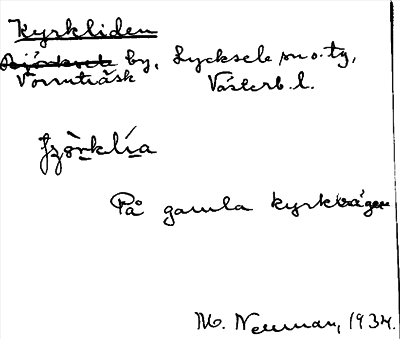 Kyrkliden
by, Lycksele sn o. tg,
Vormträsk Västerb. l.
På gamla kyrkvägen
M. Neuman, 1934.